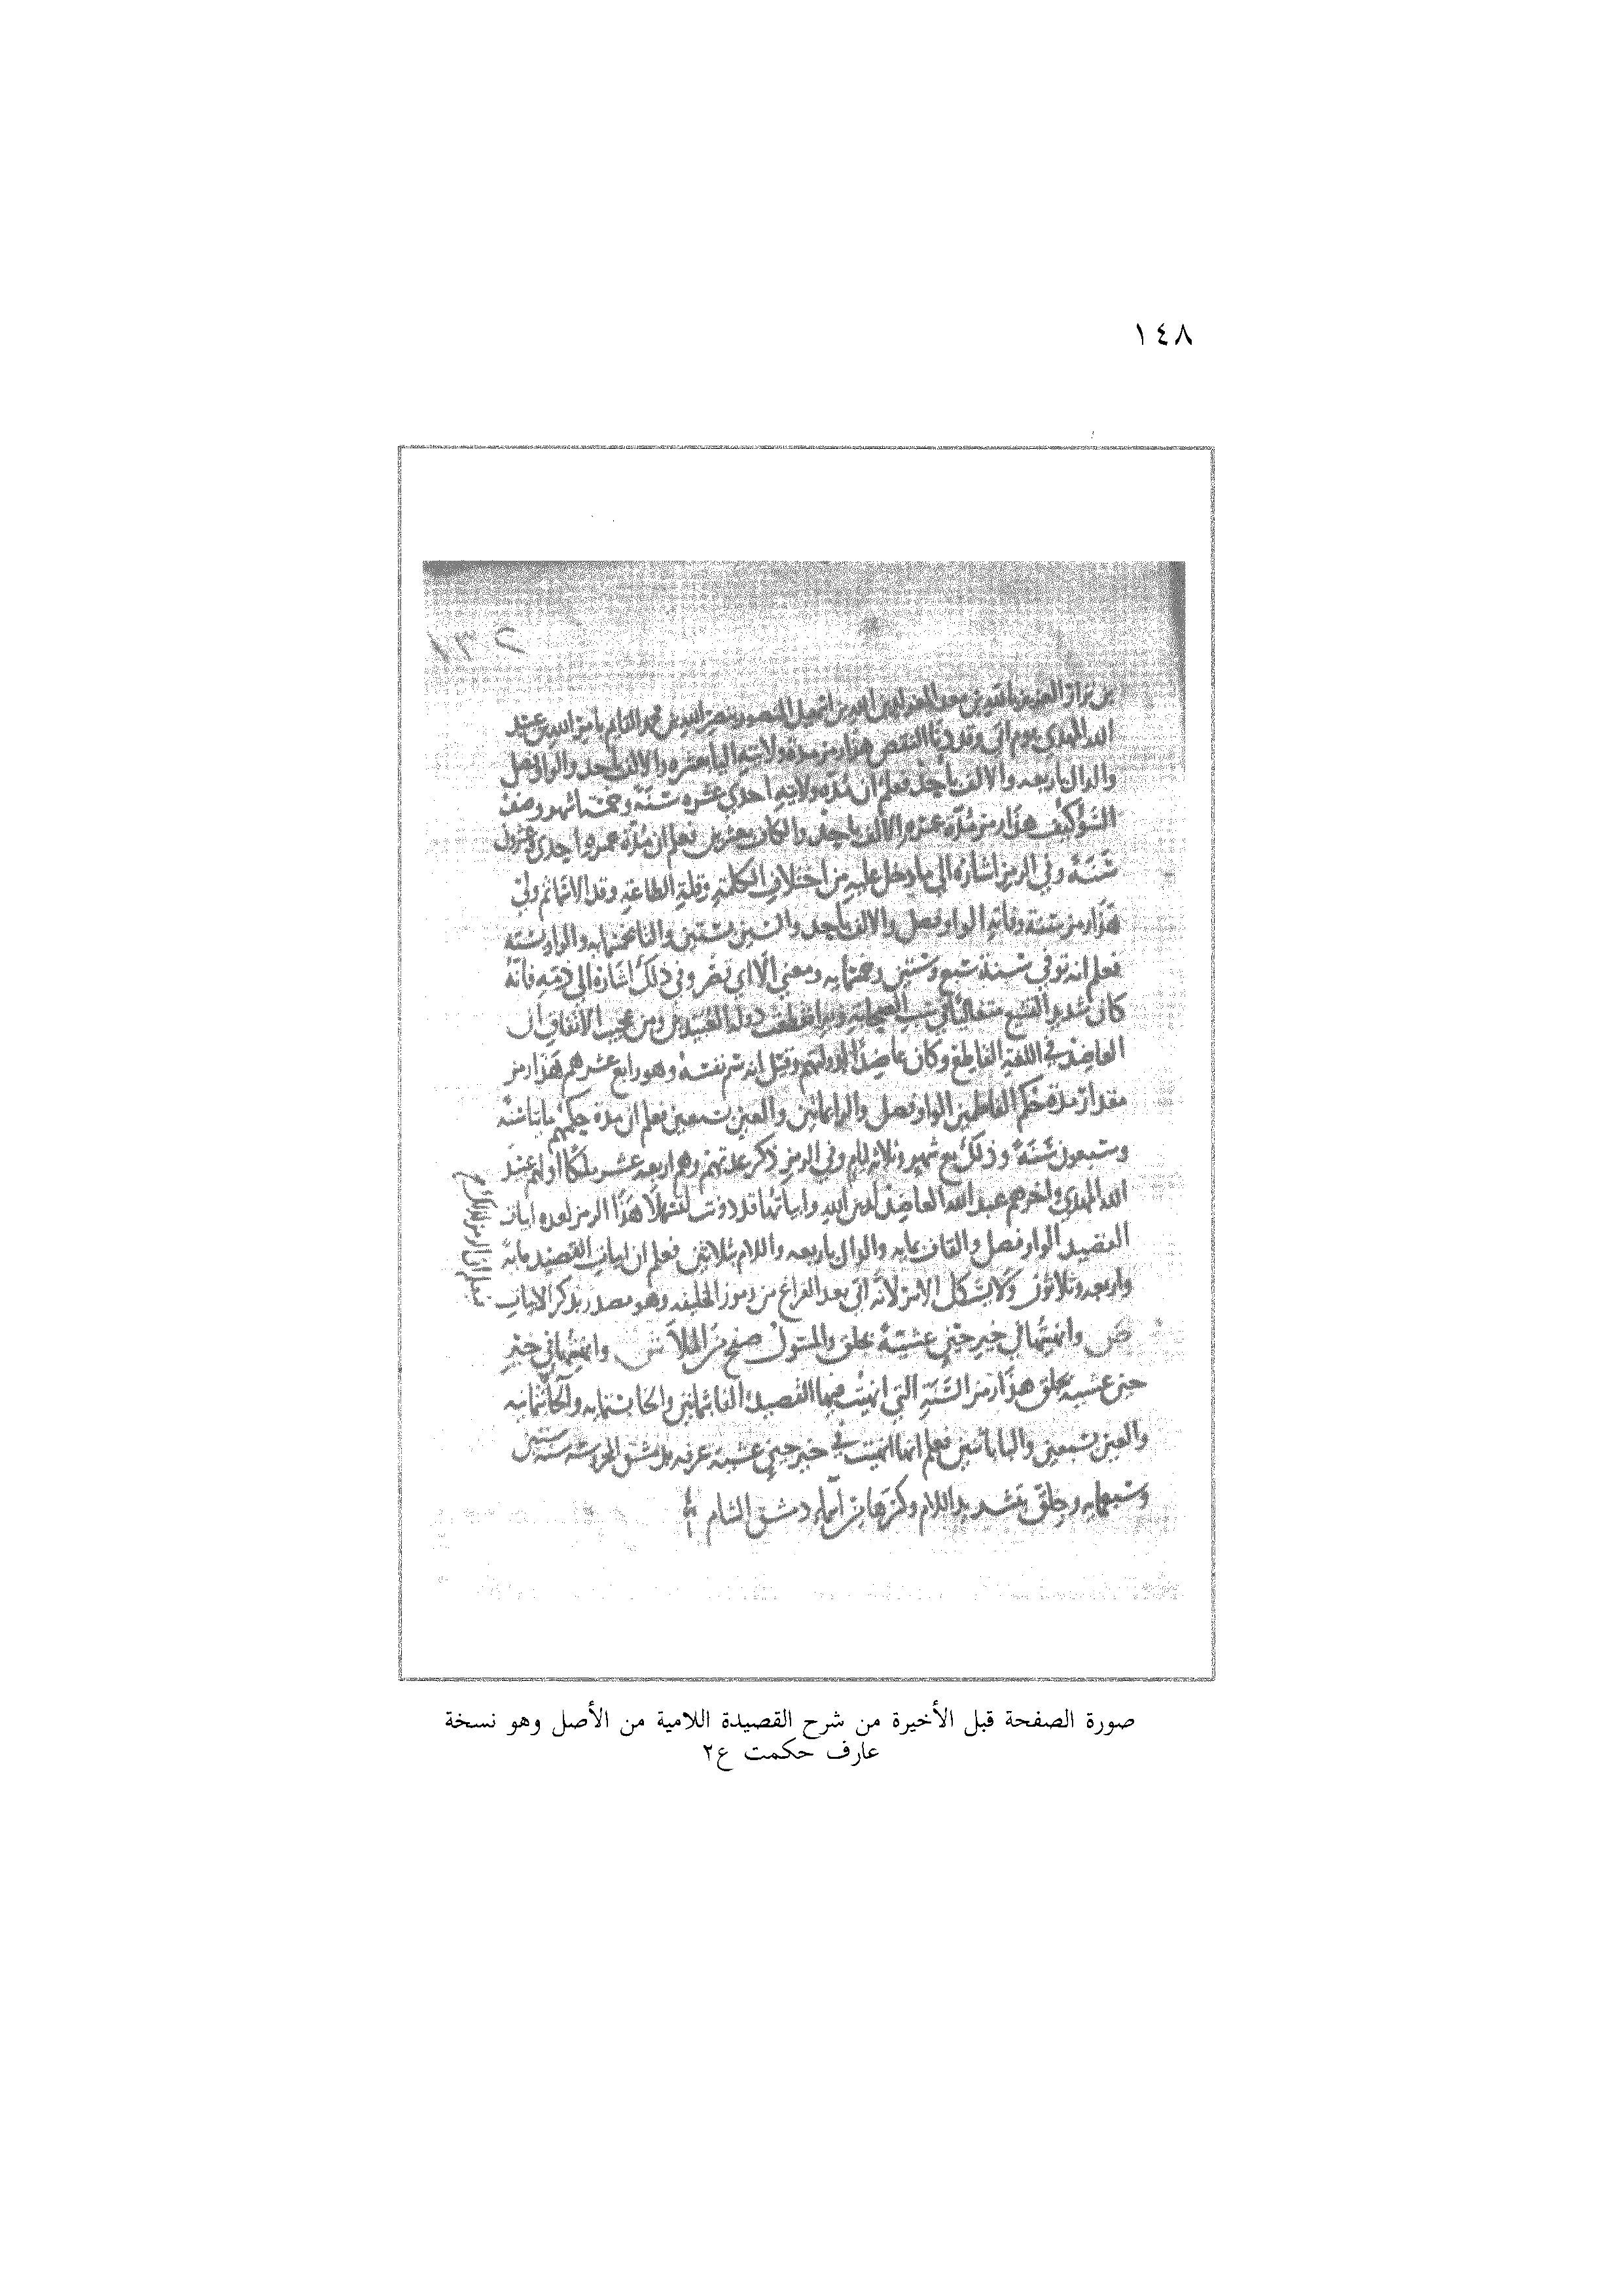 ١٤٨
١٣٢
بن نزار العزيز بالله بن معد المعز لدين الله بن اسمعيل المنصور بنصر الله بن محمد القايم بامر الله بن عبيد
الله المهدي يوم اتى وقد دنا النقص هذا رمز مدة ولايته اليا بعشره والالف بأحد والواو فصل
والدال باربعه والالف بأحد فعلم ان مدة ولايته احدي عشره سنة وخمسة اشهر ونصف
هذا رمز مدة عمره الالف باحد والكاف بعشرين فعلم ان مدة عمره احدى وعشرون
سنة وفي الرمز اشارة الى ما دخل عليه من اختلاف الكلمة وقلة الطاعة وقد الاثما ثم ولي
هذا رمز سنة وفاته الواو فصل والالف باحد والسين بستين والثا بخمسمايه والواو بستة
فعلم انه توفي سنة سبع وستين وخمسمايه ومعنى الا اي قصر وفي ذلك اشارة الى ذمه فانه
كان شديد التشيع متغاليا في سب الصحابة وبه انقطعت دولة العبيديين ومن عجيب الاتفاق ان
العاضد في اللغة القاطع وكان عاضدا لدولتهم وقيل انه سم نفسه وهو رابع عشرهم هذا رمز
مقدار مدة حكم الفاطميين الواو فصل والرا بمائتين والعين بسبعين فعلم ان مدة حكمهم مايتا سنة
وسبعون سنة وذلك مع شهر وثلاثة ايام وفي الرمز ذكر عدتهم وهم اربعه عشر ملكا اولهم عبيد
الله المهدي واخرهم عبد الله العاضد لدين الله وابياتها قد دونت لتسهلا هذا الرمز لعده ابيات
القصيد الواو فصل والقاف بمايه والدال باربعه واللام بثلاثين فعلم ان ابيات القصيد مايه
واربعه وثلاثون ولا يشكل الامر لانه اتى بعد الفراغ من رموز الخليفه وهو مصدر بذكر الابيات
ص وانهيتها في خير حين عشية بجلق والمسئول صفح من الملا ش وانهيتها في خير
حين عشية بجلق هذا رمز السنة التي انهيت فيها القصيدة الفا بثمانين والخا بستمايه والحا بثمانيه
والعين بسبعين والبا باثنين فعلم انها انهيت في خير حين عشية عرفه بدمشق المحروسه سنة ستين
وسبعمايه وجلق بتشديد اللام وكسرها من اسماء دمشق الشام
صورة الصفحة قبل الأخيرة من شرح القصيدة اللامية من الأصل وهو نسخة
عارف حكمت ع٢